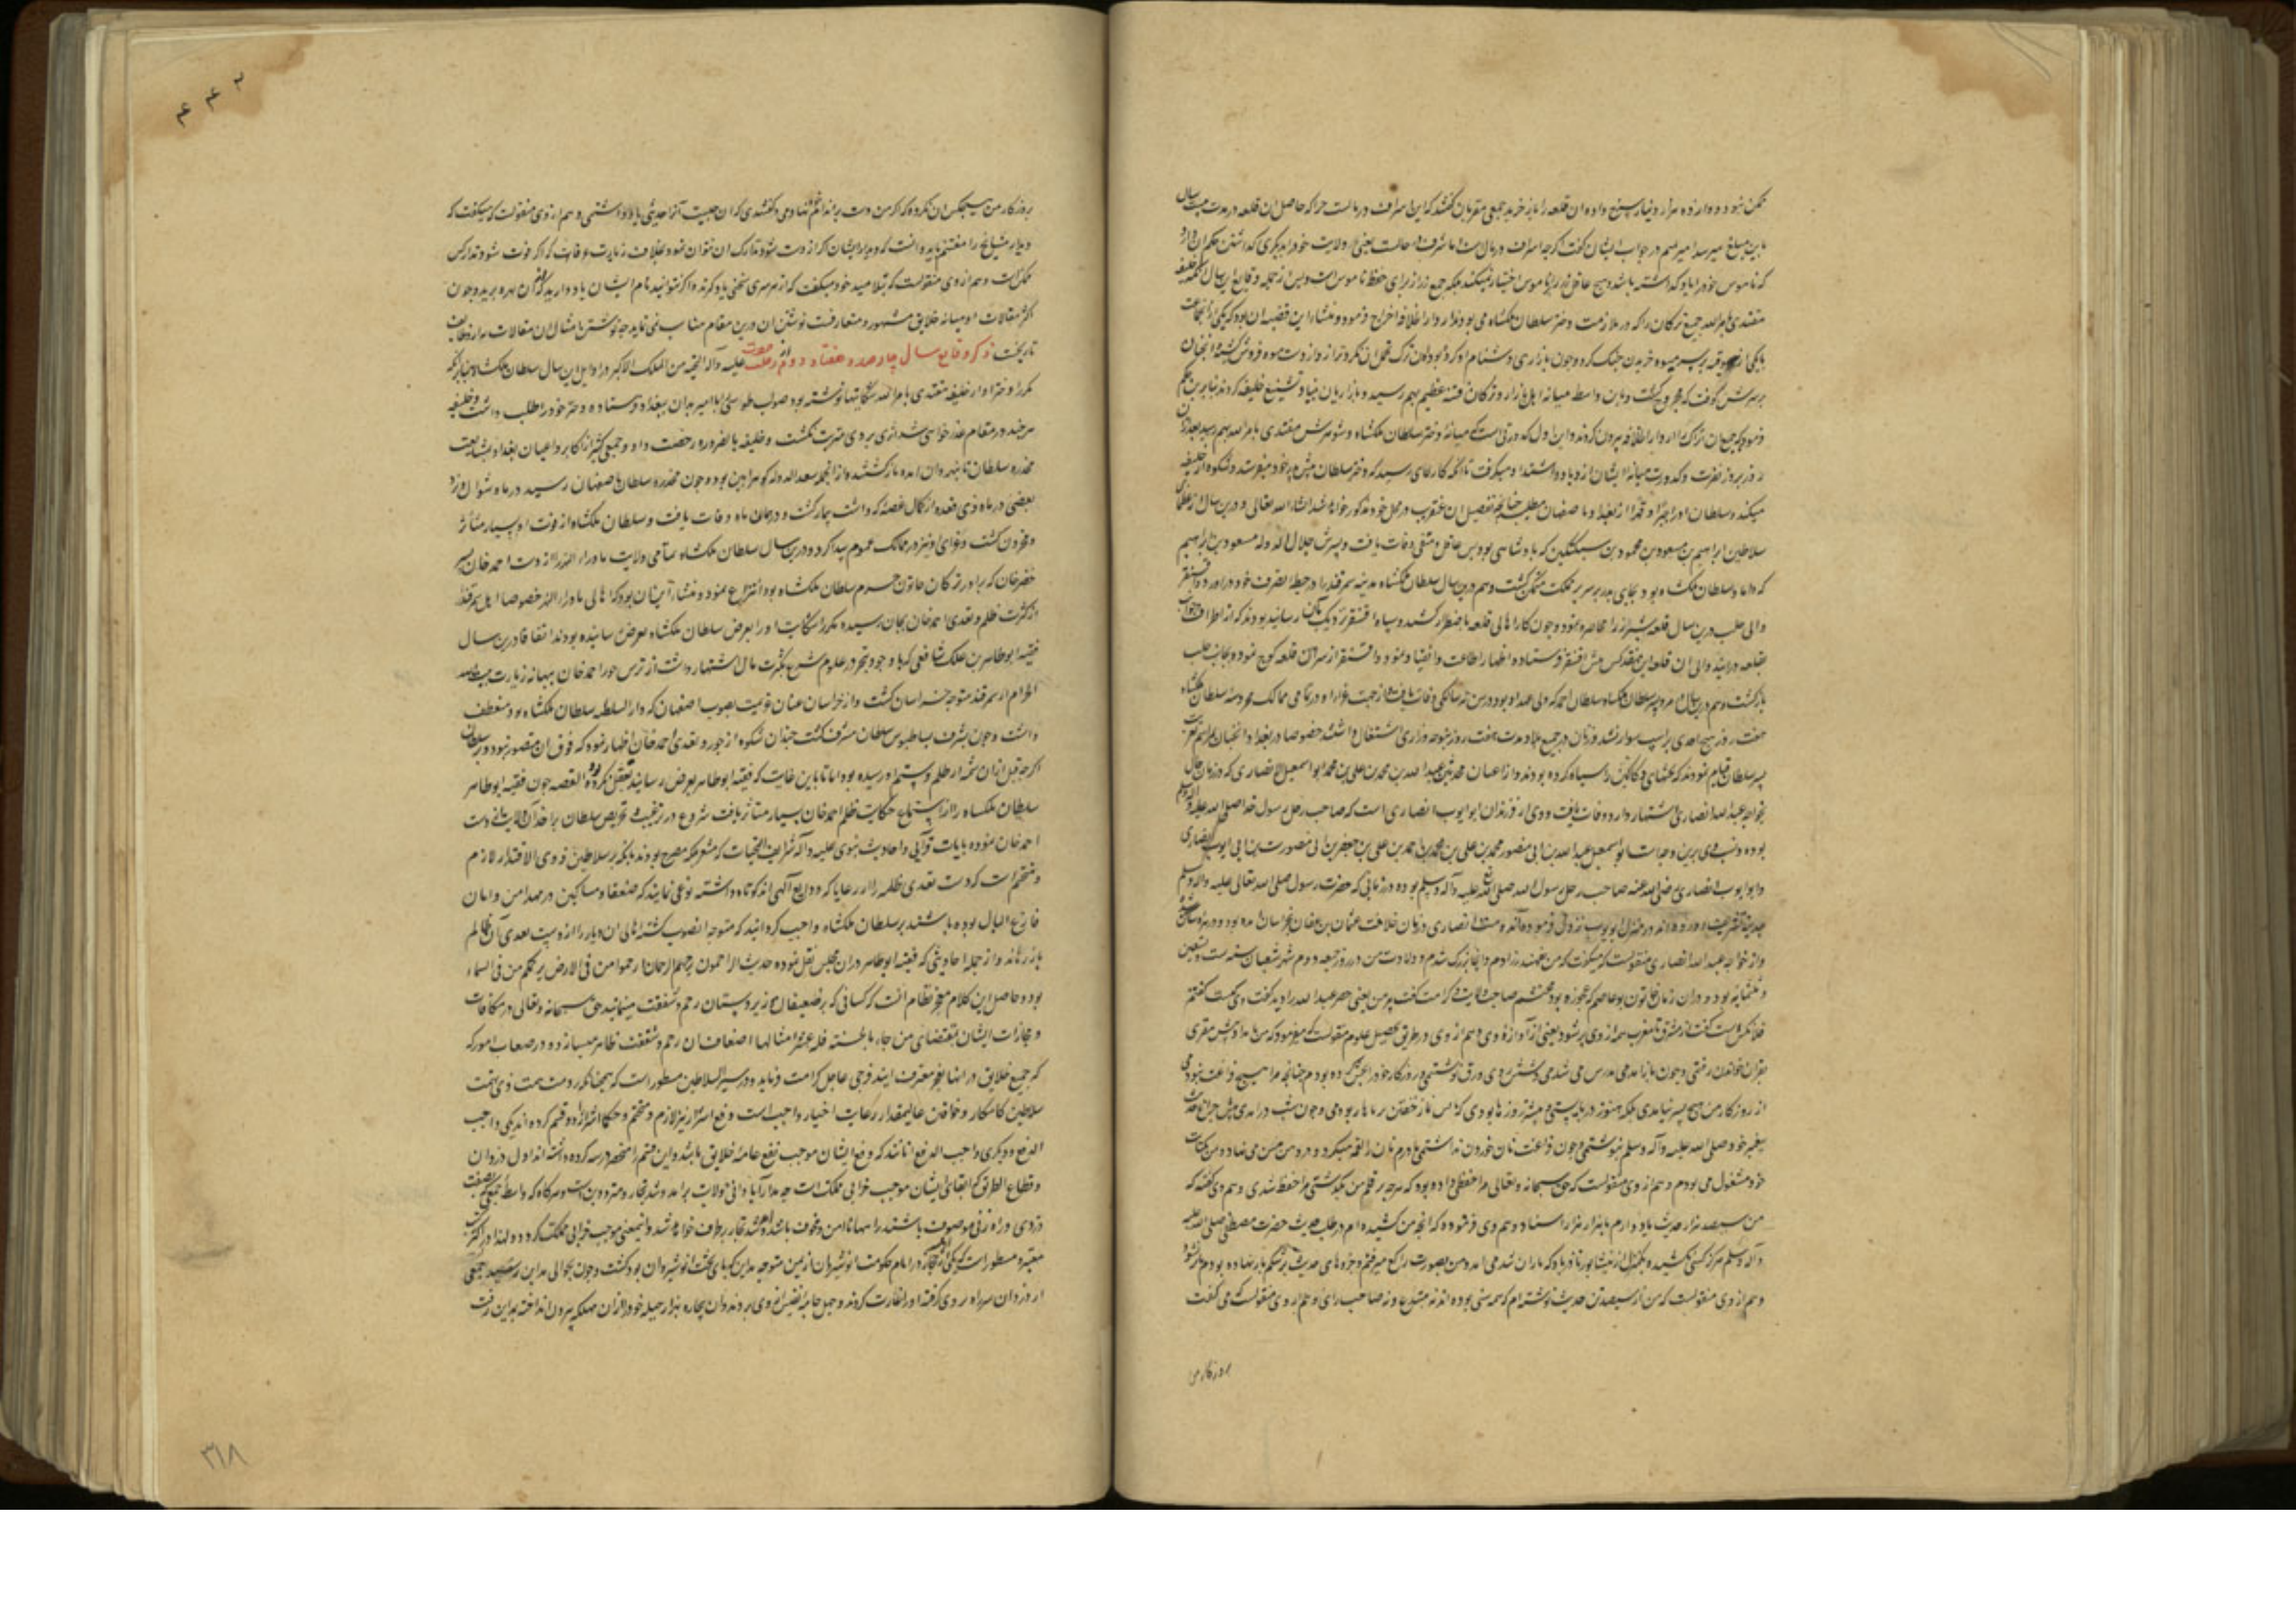 ممکن نبود و دوازده هزار دینار سرخ داده ان قلعه را باز خرید جمعی مقربان گفتند که این اسراف در مالست چرا که حاصل ان قلعه در مدت بیست سال
باین مبلغ نمیرسد امیر هم در جواب ایشان گفت اگرچه اسراف در مال است اما شرف در حالت یعنی ولایت خود را بدیگری گذاشتن
که ناموس خود را باد گذاشته باشد و هیچ عاقل زر را بناموس اختیار نمیکند بلکه جمع زر از برای حفظ ناموس است و از جمله وقایع این سال انکه خلیفه
مقتدی بامر الله جمیع ترکان را که در ملازمت دختر سلطان ملکشاه می بودند از دار الخلافه اخراج فرمود و منشأ این قضیه ان بود که یکی از
بر سر میوه خریدن جنک کرد و چون بازاری دشنام او کرده بود ان ترک تحمل ان نکرد ترازو از دست میوه فروش
بر سرش کوفت که مجروح گشت و باین واسطه میانه اهل بازار و ترکان فتنه عظیم بهم رسید و بازاریان بنیاد تشنیع خلیفه کردند بنابرین حکم
فرمود که جمیع ان اتراک را از دار الخلافه بیرون کردند و این اول کدورتی است که میانه دختر سلطان ملکشاه و شوهرش مقتدی بامر الله بهم رسید بعد از ان
روز بروز نفرت و کدورت میانه ایشان ازدیاد و اشتداد میگرفت تا انکه کار بجای رسید که دختر سلطان پیش پدر خود میفرستد و شکوه از خلیفه
میکند و سلطان او را جبرا و قهرا از بغداد باصفهان میطلبد چنانچه تفصیل ان عنقریب در محل خود مذکور خواهد شد انشاء الله تعالی و درین سال از
سلاطین ابراهیم بن مسعود بن محمود بن سبکتکین که پادشاهی بود بس عاقل و متقی وفات یافت و پسرش جلال الدوله مسعود بن ابراهیم
که داماد سلطان ملکشاه بود بجای پدر بر سریر مملکت متمکن گشت و هم درین سال سلطان ملکشاه مدینه سمرقند را در حیطه تصرف خود دراورد و اقسنقر
والی حلب درین سال قلعه شیزر را محاصره نمود و چون کار اهالی قلعه باضطرار کشید و سپاه اقسنقر نزدیک رسانیده بودند که از اطراف
بقلعه درایند والی ان قلعه ابن منقذ کس پیش اقسنقر فرستاده اظهار اطاعت و انقیاد نمود و اقسنقر از سر ان قلعه کوچ نموده بجانب حلب
بازگشت و هم درین سال مرد پسر سلطان ملکشاه سلطان احمد که ولی عهد او بود در سن نه سالگی وفات یافت از جهت عزای او در تمامی ممالک محروسه سلطان ملکشاه
هفت روز هیچ احدی بر اسپ سوار نشد و زنان در جمیع بلاد مدت هفت روز بنوحه و زاری اشتغال داشتند خصوصا در بغداد
پسر سلطان قیام نمودند که بجای دکاکین را سیاه کرده بودند و از اعیان محدثین عبد الله بن محمد بن علی بن محمد ابو اسمعیل الانصاری که در زمان حال
بخواجه عبد الله انصاری اشتهار دارد وفات یافت و وی از فرزندان ابو ایوب انصاری است که صاحب رحل رسول خدا صلی الله علیه و اله وسلم
بوده و نسب وی برین وجه است ابو اسمعیل عبد الله بن ابی منصور محمد بن علی بن محمد بن احمد بن علی بن جعفر بن ابی منصور مت بن ابی ایوب انصاری
و ابو ایوب انصاری رضی الله عنه صاحب رحل رسول الله صلی الله علیه وآله وسلم بوده در زمانی که حضرت رسول صلی الله تعالی علیه واله وسلم
بمدینه تشریف اورده اند در منزل ابو ایوب نزول فرموده اند و مت انصاری در زمان خلافت عثمان بن عفان بخراسان امده بود و در هراه ساکن
و از خواجه عبد الله انصاری منقولست که میگفت که من بقهندز زادم و انجا بزرگ شدم و ولادت من در روز جمعه دوم شهر شعبان سنه ست و تسعین
و ثلثمایه بود و دران زمان خاتون بو عاصم که عجوزه بود محتشم صاحب ولایت و کرامت گفت پیر من یعنی خضر عبد الله را دید گفت وی کیست گفتم
فلان کس است گفت از مشرق تا مغرب همه از وی پر شود یعنی از آوازه وی و هم از وی در طریق تحصیل علوم منقولست که میفرمود که من بامداد پیش مقری
بقران خواندن رفتمی و چون بازامدمی بدرس می شدمی و شش روی ورق نوشتمی و روزگار خود را بخش کرده بودم چنانچه مرا هیچ فراغت نبودی
از روزگار من هیچ بسر نیامدی بلکه هنوز دربایستی و بیشتر روزها بودی که پس نماز خفتن بر ناهار بودمی و چون شب درامدی پیش چراغ حدیث
پیغمبر خود صلی الله علیه وآله وسلم نوشتمی و چون فراغت نان خوردن نداشتمی مادرم نان را لقمه میکرد و در دهن من می نهاد و من بکتابت
خود مشغول می بودم و هم از وی منقولست که حق سبحانه وتعالی مرا حفظی داده بود که هرچه بر قلم من بگذشتی مرا حفظ شدی و هم وی گفته که
من سیصد هزار حدیث یاد دارم با هزار هزار اسناد و هم وی فرموده که انچه من کشیده ام در طلب حدیث حضرت مصطفی صلی الله علیه
وآله وسلم هرگز کسی نکشیده یک منزل از نیشابور تا دزباد که باران شدمی امد و من بصورت راکع میرفتم و جزوهای حدیث بر شکم باز نهاده بودم تا تر نشود
و هم از وی منقولست که من از سیصد تن حدیث نوشته ام که همه سنی بوده اند نه مبتدع و نه صاحب رای و هم از وی منقولست که می گفت
بروزگار من
۴۴۲
بروزگار من هیچکس ان نکرده که اگر من دست بر نهادمی و گفتندی که ان چیست آنرا حدیثی یا داشتمی و هم از وی منقولست که میگفت که
دیدار مشایخ را مغتنم باید دانست که دیدار ایشان اگر از دست شود تدارک ان نتوان نمود بخلاف زیارت عرفات که اگر فوت شود تدارکش
ممکن است و هم از وی منقولست که بتلامیذ خود میگفت که از هر پیری سخنی یاد گیرید و اگر نتوانید نام ایشان یاد دارید که ازان بهره برید و چون
اکثر مقالات او میانه خلایق مشهور و متعارفست نوشتن ان درین مقام مناسب نمی نماید چه نوشتن امثال ان مقالات
تاریخست ذکر وقایع سال چارصد و هفتاد و دوم از رحلت حضرت علیه وآله التحیه من الملک الاکبر در اوایل این سال سلطان ملکشاه بنابر انکه
مکررا دختر او از خلیفه مقتدی بامر الله شکایتها نوشته بود صواب طوسی را با میر بدان ببغداد فرستاده دختر خود را طلب داشت و خلیفه
هرچند در مقام عذر خواهی شد اثری بر وی مترتب نگشت و خلیفه بالضروره رخصت داد و جمعی کثیر از اکابر و اعیان بغداد بمشایعت
مخدره سلطان تا نهروان امده بازگشتند و از انجمله سعد الدوله کوهرایین بوده چون مخدره سلطان باصفهان رسید در ماه شوال و نزد
بعضی در ماه ذی قعده از کمال غصه که داشت بیمار گشت و در همان ماه وفات یافت و سلطان ملکشاه از فوت او بسیار متأثر
و محزون گشت و عزای او نیز در ممالک عموم پیدا کرد و درین سال سلطان ملکشاه تمامی ولایت ماوراء النهر را از دست احمد خان پسر
خضر خان که برادر ترکان خاتون حرم سلطان ملکشاه بود انتزاع نمود و منشأ آن ان بود که اهالی ماوراء النهر خصوصا اهل سمرقند
از کثرت ظلم و تعدی احمد خان بجان رسیده مکررا شکایت او را بعرض سلطان ملکشاه بعرض رسانیده بودند اتفاقا درین سال
فقیه ابو طاهر بن علک شافعی که با وجود تبحر در علوم شرع بکثرت مال اشتهار داشت از ترس جور احمد خان ببهانه زیارت بیت الله
الحرام از سمرقند متوجه خراسان گشت و از خراسان عنان عزیمت بصوب اصفهان که دار السلطنه سلطان ملکشاه بود منعطف
داشت و چون بشرف بساط بوس سلطان مشرف گشت چندان شکوه از جور و تعدی احمد خان اظهار نمود که فوق ان متصور نبود و سلطان
اگرچه قبل ازان شمه از ظلم و ستم او رسیده بود اما تا باین غایت که فقیه ابو طاهر بعرض رسانید تعقل نکرده بود القصه چون فقیه ابو طاهر
سلطان ملکشاه را از استماع حکایت ظلم احمد خان بسیار متأثر یافت شروع در ترغیب و تحریص سلطان بر اخذ آن ولایت از دست
احمد خان نموده بایات قرآنی و احادیث نبوی علیه وآله شرایف التحیات که مشعر بلکه مصرح بودند بانکه بر سلاطین ذوی الاقتدار لازم
و متحتم است که دست تعدی ظلمه را از رعایا که ودایع آلهی اند کوتاه داشته نوعی نمایند که ضعفا و مساکین در مهد امن و امان
فارغ البال بوده باشند بر سلطان ملکشاه واجب گردانید که متوجه انصوب گشته اهالی ان دیار را از دست تعدی آن ظالم
باز رهاند و از جمله احادیثی که فقیه ابو طاهر دران مجلس نقل نموده حدیث الراحمون یرحمهم الرحمن ارحموا من فی الارض یرحمکم من فی السماء
بود و حاصل این کلام معجز نظام انست که کسانی که بر ضعیفان و زیردستان رحم و شفقت مینمایند حق سبحانه وتعالی در مکافات
و مجازات ایشان بمقتضای من جاء بالحسنه فله عشر امثالها اضعاف ان رحم و شفقت ظاهر میسازد و در صعاب امور که
که جمیع خلایق در انها بعجز معترف ایند فرجی عاجل کرامت فرماید و در سیر السلاطین مسطور است که همچنانکه در ذمت همت ذوی نهمت
سلاطین کامکار و خواقین عالیمقدار رعایت اخیار واجب است دفع اشرار نیز لازم و متحتم و حکما اشرار را دو قسم کرده اند یکی واجب
الدفع و دیگری واجب الدفع انانند که دفع ایشان موجب نفع عامه خلایق باشد و این قسم را منحصر در سه کرده دانسته اند اول دزدان
و قطاع الطریق که ابقای ایشان موجب خرابی مملکت است چه مدار آبادانی ولایت برامد و شد تجار و مترددین است و هرگاه که واسطه جمعی که بصفت
دزدی و راه زنی موصوف باشند راهها ناامن و مخوف باشد امد و شد تجار برطرف خواهد شد و اینمعنی موجب خرابی مملکت گردد و لهذا در اکثر کتب
معتبره مسطور است که یکی از تجار در ایام حکومت انوشیروان از یمن متوجه مداین که پای تخت انوشیروان بود گشت و چون بحوالی مداین رسید جمعی
از دزدان سر راه بر وی گرفته او را غارت کردند و چهل جامه نفیس از وی بردند و ان بیچاره بهزار حیله خود را از ان مهلکه بیرون انداخته بمداین رفت
۳۱۸